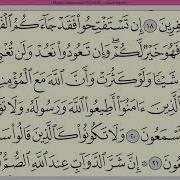 فِرِينَ ١٨ إِن تَسْتَفْتِحُوا۟ فَقَدْ جَآءَكُمُ ٱلْفَ
فَهُوَ خَيْرٌ لَّكُمْ ۖ وَإِن تَعُودُوا۟ نَعُدْ وَلَن تُغْنِ
شَيْـًٔا وَلَوْ كَثُرَتْ وَأَنَّ ٱللَّهَ مَعَ ٱلْمُؤْمِنِ
ءَامَنُوٓا۟ أَطِيعُوا۟ ٱللَّهَ وَرَسُولَهُۥ وَلَا
تَسْمَعُونَ ٢٠ وَلَا تَكُونُوا۟ كَٱلَّذِينَ قَالُوا۟ سَ
٢١ إِنَّ شَرَّ ٱلدَّوَآبِّ عِندَ ٱللَّهِ ٱلصُّمُّ